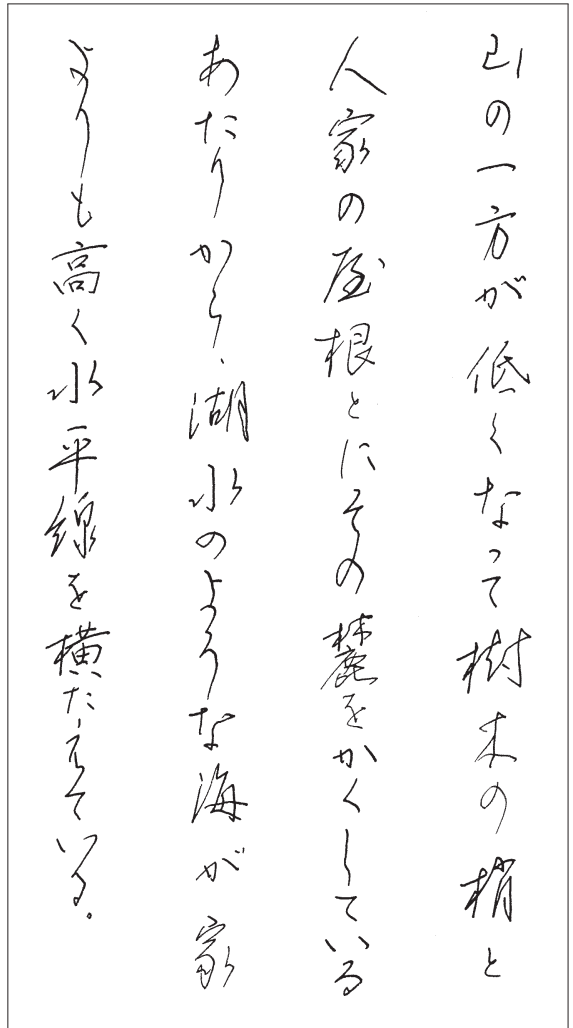 山の一方が低くなって樹木の梢と
人家の屋根とにその麓をかくしている
あたりから、湖水のような海が家
よりも高く水平線を横たえている。